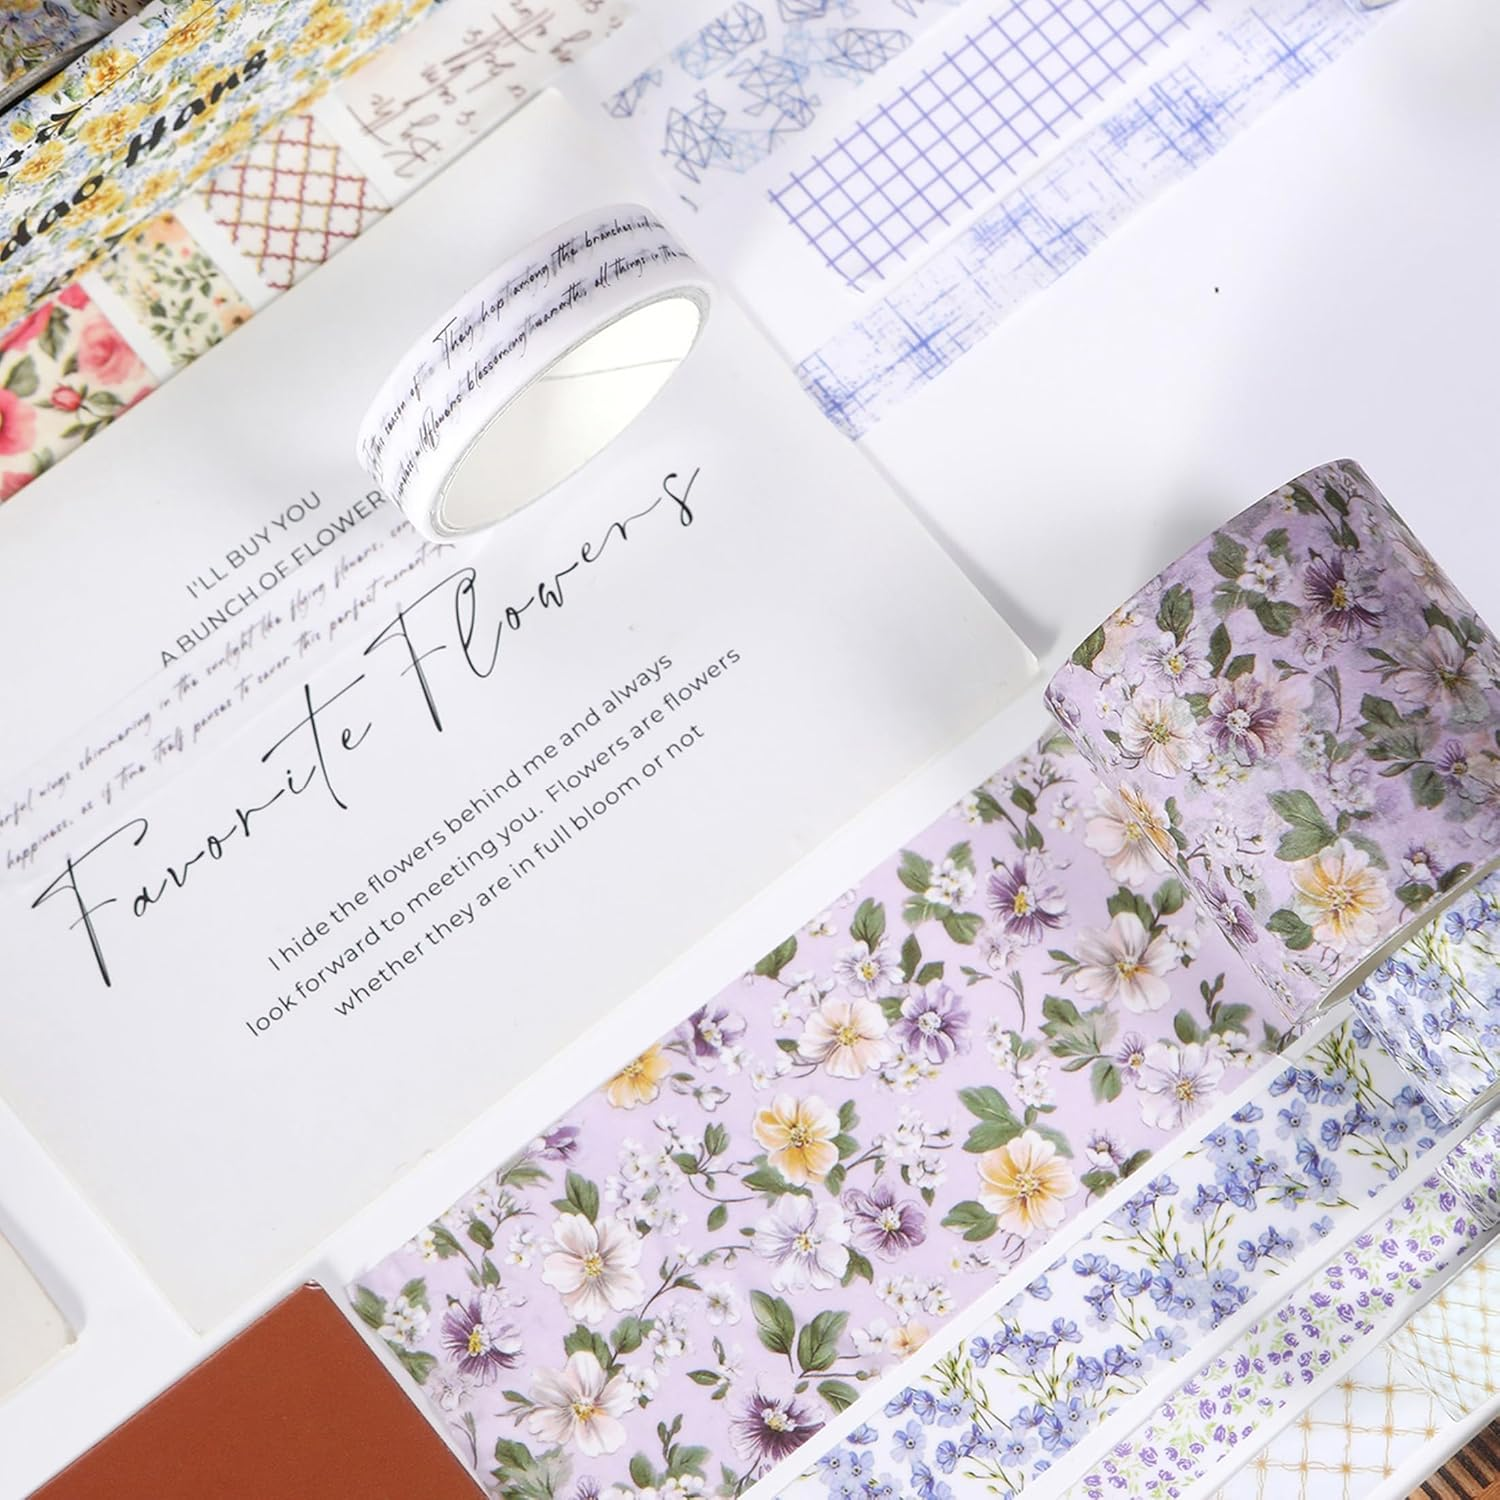 dao Hans
They hop among the branches
this season of
all things in the
wildflowers blossoming
I'LL BUY YOU
A BUNCH OF FLOWER
wings shimmering in the sunlight like flying flowers,
happiness, as if time itself pauses to savor this perfect moment
Favorite Flowers
I hide the flowers behind me and always
look forward to meeting you. Flowers are flowers
whether they are in full bloom or not